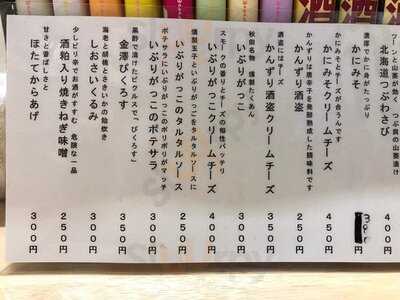 ツーンと山葵が効く つぶ貝の山葵漬け
北海道つぶわさび
400円
濃厚でかに身がたっぷり
かにみそ
円
かにみそとチーズが合うんです
かにみそクリームチーズ
450円
かんずりは唐辛子を発酵熟成した調味料です
かんずり酒盗
250円
酒盗にはチーズ
かんずり酒盗クリームチーズ
350円
秋田名物 燻製たくあん
いぶりがっこ
300円
スモークの香りとチーズの相性バッチリ
いぶりがっこクリームチーズ
400円
燻製玉子といぶりがっこをタルタルソースに
いぶりがっこのタルタルソース
250円
ポテサラにいぶりがっこのポリポリがマッチ
いぶりがっこのポテサラ
300円
黒酢で漬けたピクルスで「びくろす」
金澤びくろす
350円
海老と胡桃ときいかの飴炊き
しおさいくるみ
300円
少しピリ辛でお酒がすすむ 危険な一品
酒粕入り焼きねぎ味噌
250円
甘さと香ばしさと
ほたてからあげ
300円